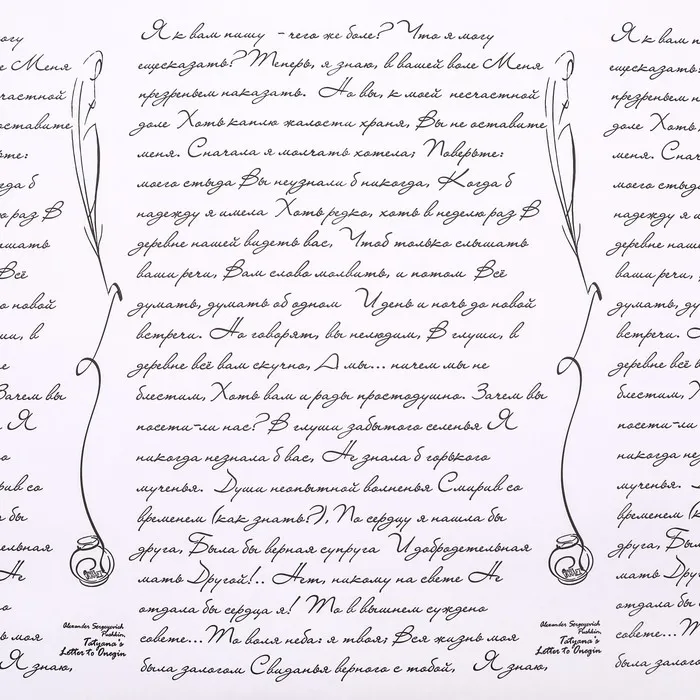 Я к вам пишу - чего же боле? Что я могу
ещесказать? Теперь, я знаю, в вашей воле Меня
презреньем наказать. Но вы, к моей несчастной
доле Хоть каплю жалости храня, Вы не оставите
меня. Сначала я молчать хотела; Поверьте:
моего стыда Вы неузнали б никогда, Когда б
надежду я имела Хоть редко, хоть в неделю раз В
деревне нашей видеть вас, Чтоб только слышать
ваши речи, Вам слово молвить, и потом Всё
думать, думать об одном И день и ночь до новой
встречи. Но говорят, вы нелюдим, В глуши, в
деревне всё вам скучно, А мы... ничем мы не
блестим, Хоть вам и рады простодушно. Зачем вы
посети-ли нас? В глуши забытого селенья Я
никогда незнала б вас, Не знала б горького
мученья. Души неопытной волненья Смирив со
временем (как знать?), По сердцу я нашла бы
друга, Была бы верная супруга И добродетельная
мать Другой!.. Нет, никому на свете Не
отдала бы сердца я! То в вышнем суждено
совете... То воля неба: я твоя; Вся жизнь моя
была залогом Свиданья верного с тобой, Я знаю,
Alexander Sergeyevich
Pushkin,
Tatyana's
Letter to Onegin